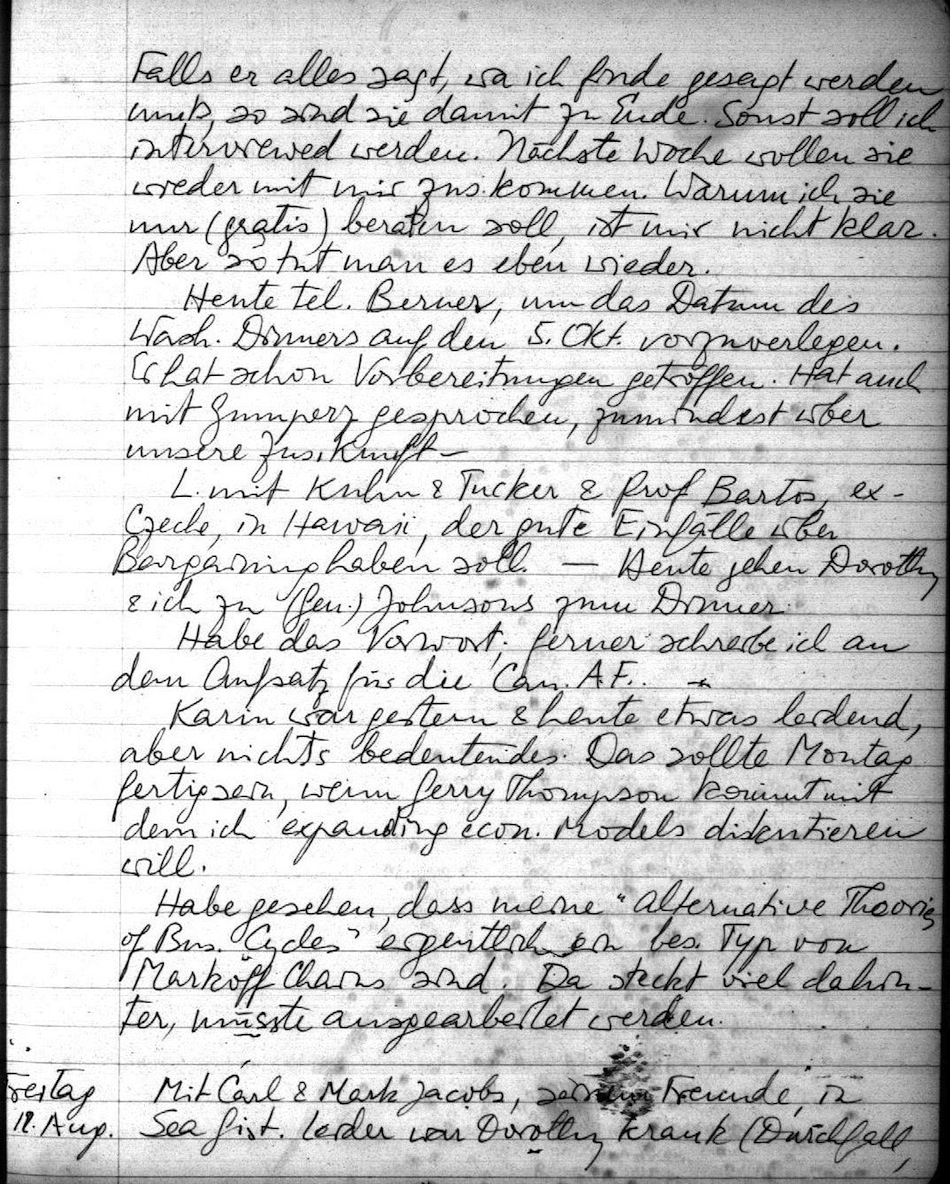 Falls er alles sagt, wa ich finde gesagt werden
muß, so sind sie damit zu Ende. Sonst soll ich
interviewed werden. Nächste Woche wollen sie
wieder mit mir zus. kommen. Warum ich sie
nur (gratis) beraten soll, ist mir nicht klar.
Aber so tut man es eben wieder.
Heute tel. Berner, um das Datum des
Wash. Dinners auf den 5. Okt. vorzuverlegen.
Er hat schon Vorbereitungen getroffen. Hat auch
mit Gumperz gesprochen, zumindest über
unsere Zus.kunft –
L. mit Kuhn & Tucker & Prof Bartos, ex-
Czeche, in Hawaii, der gute Einfälle über
Bargaining haben soll. — Heute gehen Dorothy
& ich zu (Gen.) Johnsons zum Dinner.
Habe das Vorwort; ferner schreibe ich an
dem Aufsatz für die Can. A.F.. –
Karin war gestern & heute etwas leidend,
aber nichts bedeutendes. Das sollte Montag
fertig sein, wenn Gerry Thompson kommt mit
dem ich expanding econ. Models diskutieren
will.
Habe gesehen, dass meine "alternative Theories
of Bus. Cycles" eigentlich ein bes. Typ von
Markoff Chains sind. Da steckt viel dahin-
ter, müsste ausgearbeitet werden.
Freitag Mit Carl & Mark Jacobs, Freunde, in
Aug. Sea Girt. Leider war Dorothy krank (Durchfall,